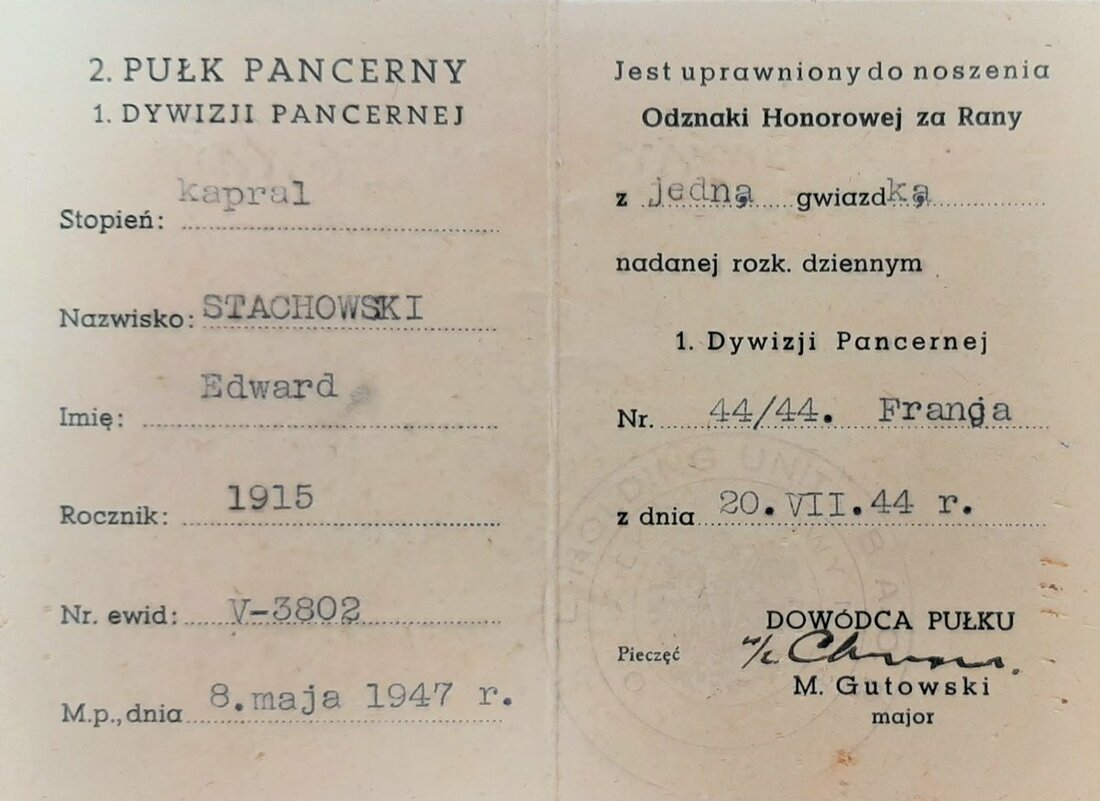 2. PUŁK PANCERNY
1. DYWIZJI PANCERNEJ
Stopień: kapral
Nazwisko: STACHOWSKI
Imię: Edward
Rocznik: 1915
Nr. ewid: V-3802
M.p., dnia 8.maja 1947 r.
Jest uprawniony do noszenia
Odznaki Honorowej za Rany
z jedną gwiazdką
nadanej rozk. dziennym
1. Dywizji Pancernej
Nr. 44/44. Francja
z dnia 20.VII.44 r.
HOLDING UNIT
DOWÓDCA PUŁKU
Pieczęć
M. Gutowski
major